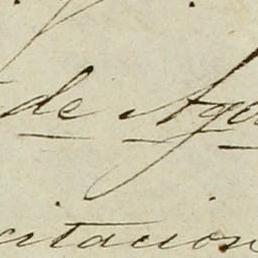 de Ago
citacion